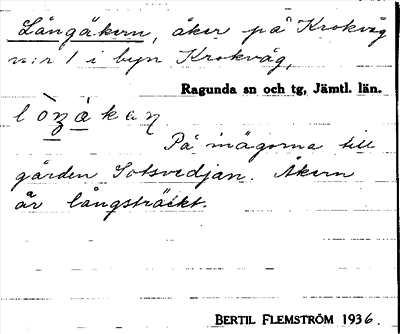 Långåkern, åker på Krokvåg
nr 1 i byn Krokvåg,
Ragunda sn och tg, Jämtl. län.
På mägorna till
gården Sotsvedjan. Åkern
är långsträckt.
BERTIL FLEMSTRÖM 1936.